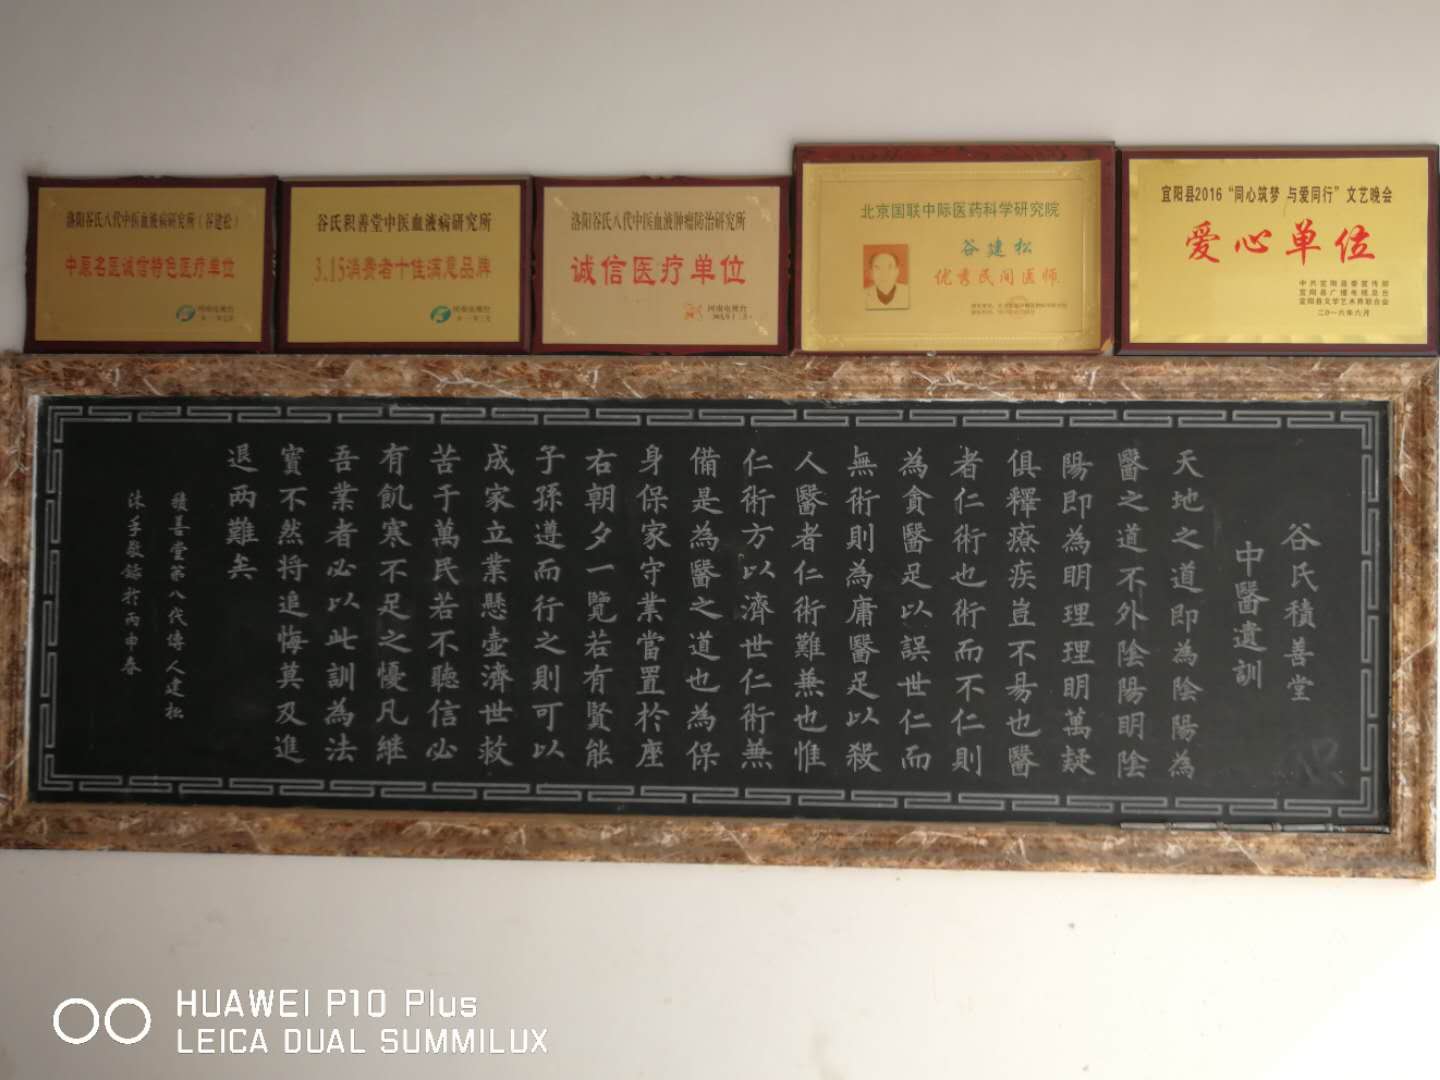 洛阳谷氏八代中医血液病研究所（谷建松）
中原名医诚信特色医疗单位
河南电视台
谷氏积善堂中医血液病研究所
3.15消费者十佳满意品牌
河南电视台
洛阳谷氏八代中医血液肿瘤防治研究所
诚信医疗单位
河南电视台
北京国联中际医药科学研究院
谷建松
优秀民间医师
宜阳县2016“同心筑梦 与爱同行”文艺晚会
爱心单位
中共宜阳县委宣传部
宜阳县广播电视总台
宜阳县文学艺术界联合会
二〇一六年六月
谷氏積善堂
中醫遺訓
天地之道即為陰陽為
醫之道不外陰陽明陰
陽即為明理理明萬疑
俱釋療疾豈不易也醫
者仁術也術而不仁則
為貪醫足以誤世仁而
無術則為庸醫足以殺
人醫者仁術難兼也惟
仁術方以濟世仁術無
備是為醫之道也為保
身保家守業當置於座
右朝夕一覽若有賢能
子孫遵而行之則可以
成家立業懸壺濟世救
苦于萬民若不聽信必
有飢寒不足之憂凡継
吾業者必以此訓為法
實不然将追悔莫及進
退两難矣
積善堂第八代傳人建松
沐手敬錄於丙申春
HUAWEI P10 Plus
LEICA DUAL SUMMILUX